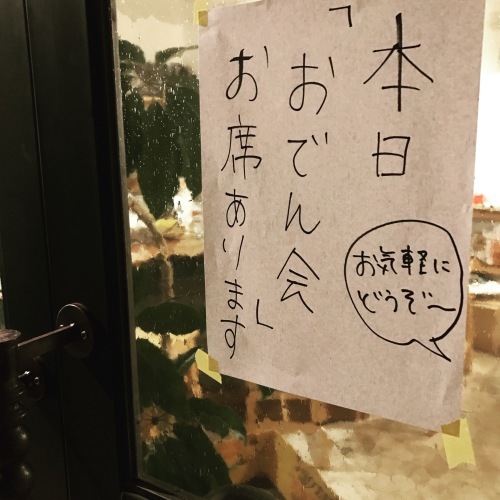 本日
「おでん会」
お席あります
お気軽に
どうぞ〜